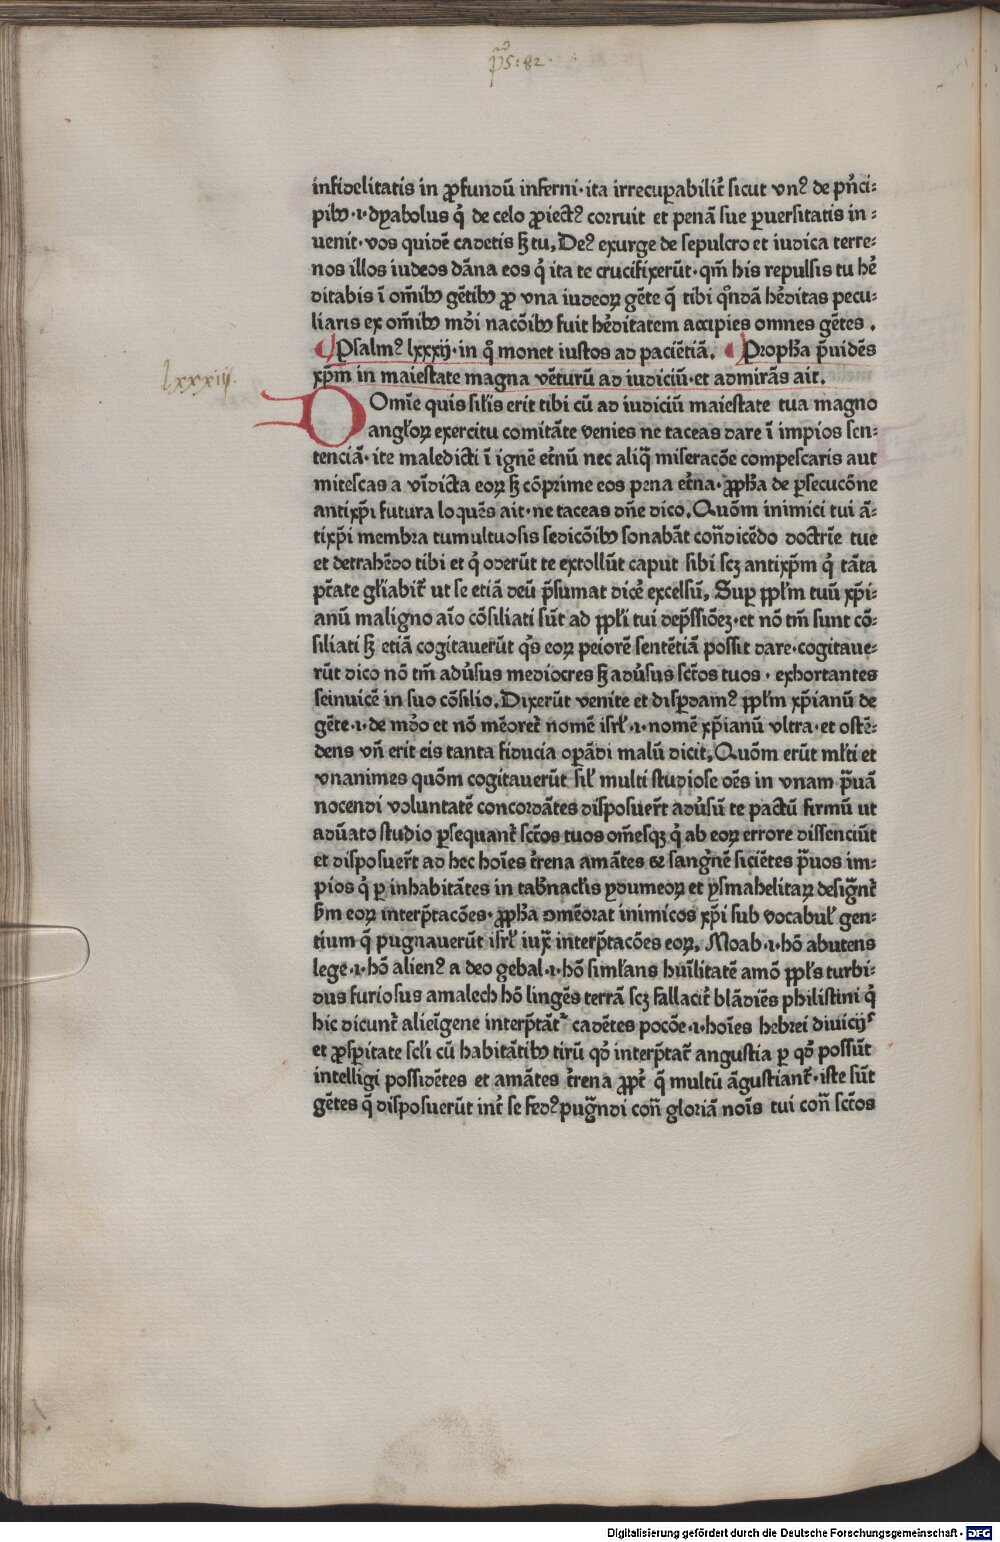 ps: 82.
infidelitatis in ꝓfundū inferni·ita irrecuꝑabilit̄ sicut vnꝰ de pn̄ci⸗
pibꝫ·i·dyabolus q̇ de celo ꝓiectꝰ corruit et penā sue ꝑuersitatis in⸗
uenit·vos quidē cadetis sꝫ tu, Deꝰ exurge de sepulcro et iudica terre⸗
nos illos iudeos dāna eos q̇ ita te crucifixerūt·qm̄ his repulsis tu hē
ditabis ī om̄ibꝫ gētibꝫ ꝓ vna iudeoꝝ gēte q̄ tibi qn̄dā hēditas pecu⸗
liaris ex om̄ibꝫ mdi nacōibꝫ fuit hēditatem accipies omnes gētes.
Psalmꝰ lxxxij·in q̊ monet iustos ad paciētiā. Propħa p̄uidēs
xp̄m in maiestate magna vēturū ad iudiciū·et admirās ait.
lxxxiij.
Domīe quis silis erit tibi cū ad iudiciū maiestate tua magno
angl̄oꝝ exercitu comitāte venies ne taceas dare ī impios sen⸗
tenciā·ite maledicti ī ignē etn̄ū nec aliq̄ miseracōe compescaris aut
mitescas a vīdicta eoꝝ sꝫ cōprime eos pena et̄na·ꝓpħa de ꝑsecucōne
antixp̄i futura loquēs ait·ne taceas dn̄e dico, Quōm inimici tui ā⸗
tixp̄i membra tumultuosis sedicōibꝫ sonabāt con̄dicēdo doctrīe tue
et detrahēdo tibi et q̇ oderūt te extollūt caput sibi scꝫ antixp̄m q̇ tāta
pt̄ate gl̄iabit̄ ut se etiā deū p̄sumat dicē excelsū, Suꝑ ppl̄m tuū xp̄i⸗
anū maligno aīo cōsiliati sūt ad ppl̄i tui dep̄ssiōeꝫ·et nō tm̄ sunt cō⸗
siliati sꝫ etiā cogitauerūt q̊s eoꝝ peiorē sentētiā possit dare·cogitaue⸗
rūt dico nō tm̄ adu̇sus mediocres sꝫ adu̇sus sct̄os tuos·exhortantes
seinuicē in suo cōsilio, Dixerūt venite et disꝑdamꝰ ppl̄m xp̄ianū de
gēte·i·de mdo et nō mēoret̄ nomē isrł·i·nomē xp̄ianū vltra·et ostē⸗
dens vn̄ erit eis tanta fiducia oꝑādi malū dicit, Quōm erūt ml̄ti et
vnanimes quōm cogitauerūt sil̄ multi studiose oēs in vnam p̄uā
nocendi voluntatē concordātes disposuer̄t adu̇sū te pactū firmū ut
adūato studio ꝑsequant̄ sct̄os tuos om̄esqꝫ q̇ ab eoꝝ errore dissenciūt
et disposuer̄t ad hec hoīes t̄rena amātes & sang̊nē siciētes p̄uos im⸗
pios q̇ ꝑ inhabitātes in tabn̄acl̄is ydumeoꝝ et ysmahelitaꝝ design̄t̄
ẜm eoꝝ interp̄tacōes·ꝓpħa ꝯmēorat inimicos xp̄i sub vocabul̄ gen⸗
tium q̄ pugnauerūt isrł iux̄ interp̄tacōes eoꝝ, Moab·i·hō abutens
lege·i·hō alienꝰ a deo gebal·i·hō siml̄ans huīlitatē amō ppl̄s turbi⸗
dus furiosus amalech hō lingēs terrā scꝫ fallacit̄ blādiēs philistini q̇
hic dicunt̄ alieīgene interp̄tāt᷑ cadētes pocōe·i·hoīes hebrei diuicijs
et ꝓsꝑitate scl̄i cū habitātibꝫ tirū qd̄ interp̄tat̄ angustia ꝑ qd̄ possūt
intelligi possidētes et amātes t̄rena ꝓpt̄ q̄ multū āgustiant̄·iste sūt
gētes q̄ disposuerūt int̄ se fedꝰ pug̅ndi con̄ gloriā noīs tui con̄ sct̄os
Digitalisierung gefördert durch die Deutsche Forschungsgemeinschaft - DFG